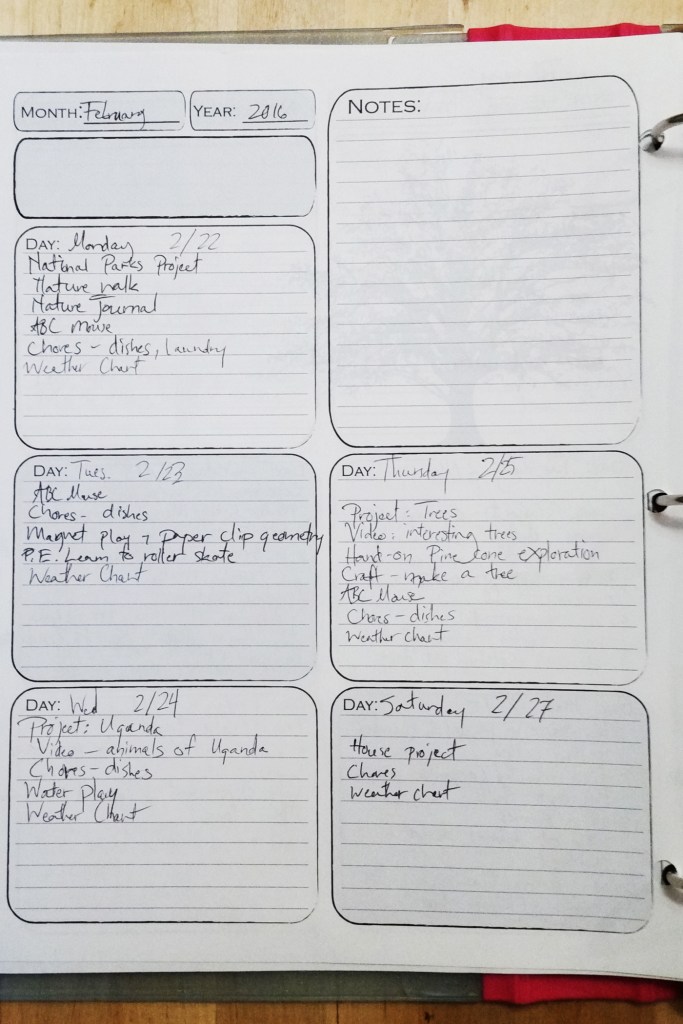 MONTH: February
YEAR: 2016
NOTES:
DAY: Monday 2/22
National Parks Project
Nature walk
Nature Journal
ABC Mouse
Chores - dishes, laundry
Weather Chart
DAY: Tues. 2/23
ABC Mouse
Chores - dishes
Magnet play + paper clip geometry
P.E. Learn to roller skate
Weather Chart
DAY: Wed 2/24
Project: Uganda
Video - animals of Uganda
Chores - dishes
Water play
Weather Chart
DAY: Thursday 2/25
Project: Trees
Video: interesting trees
Hand-on Pine cone exploration
Craft - make a tree
ABC Mouse
Chores - dishes
Weather chart
DAY: Saturday 2/27
House project
Chores
Weather chart